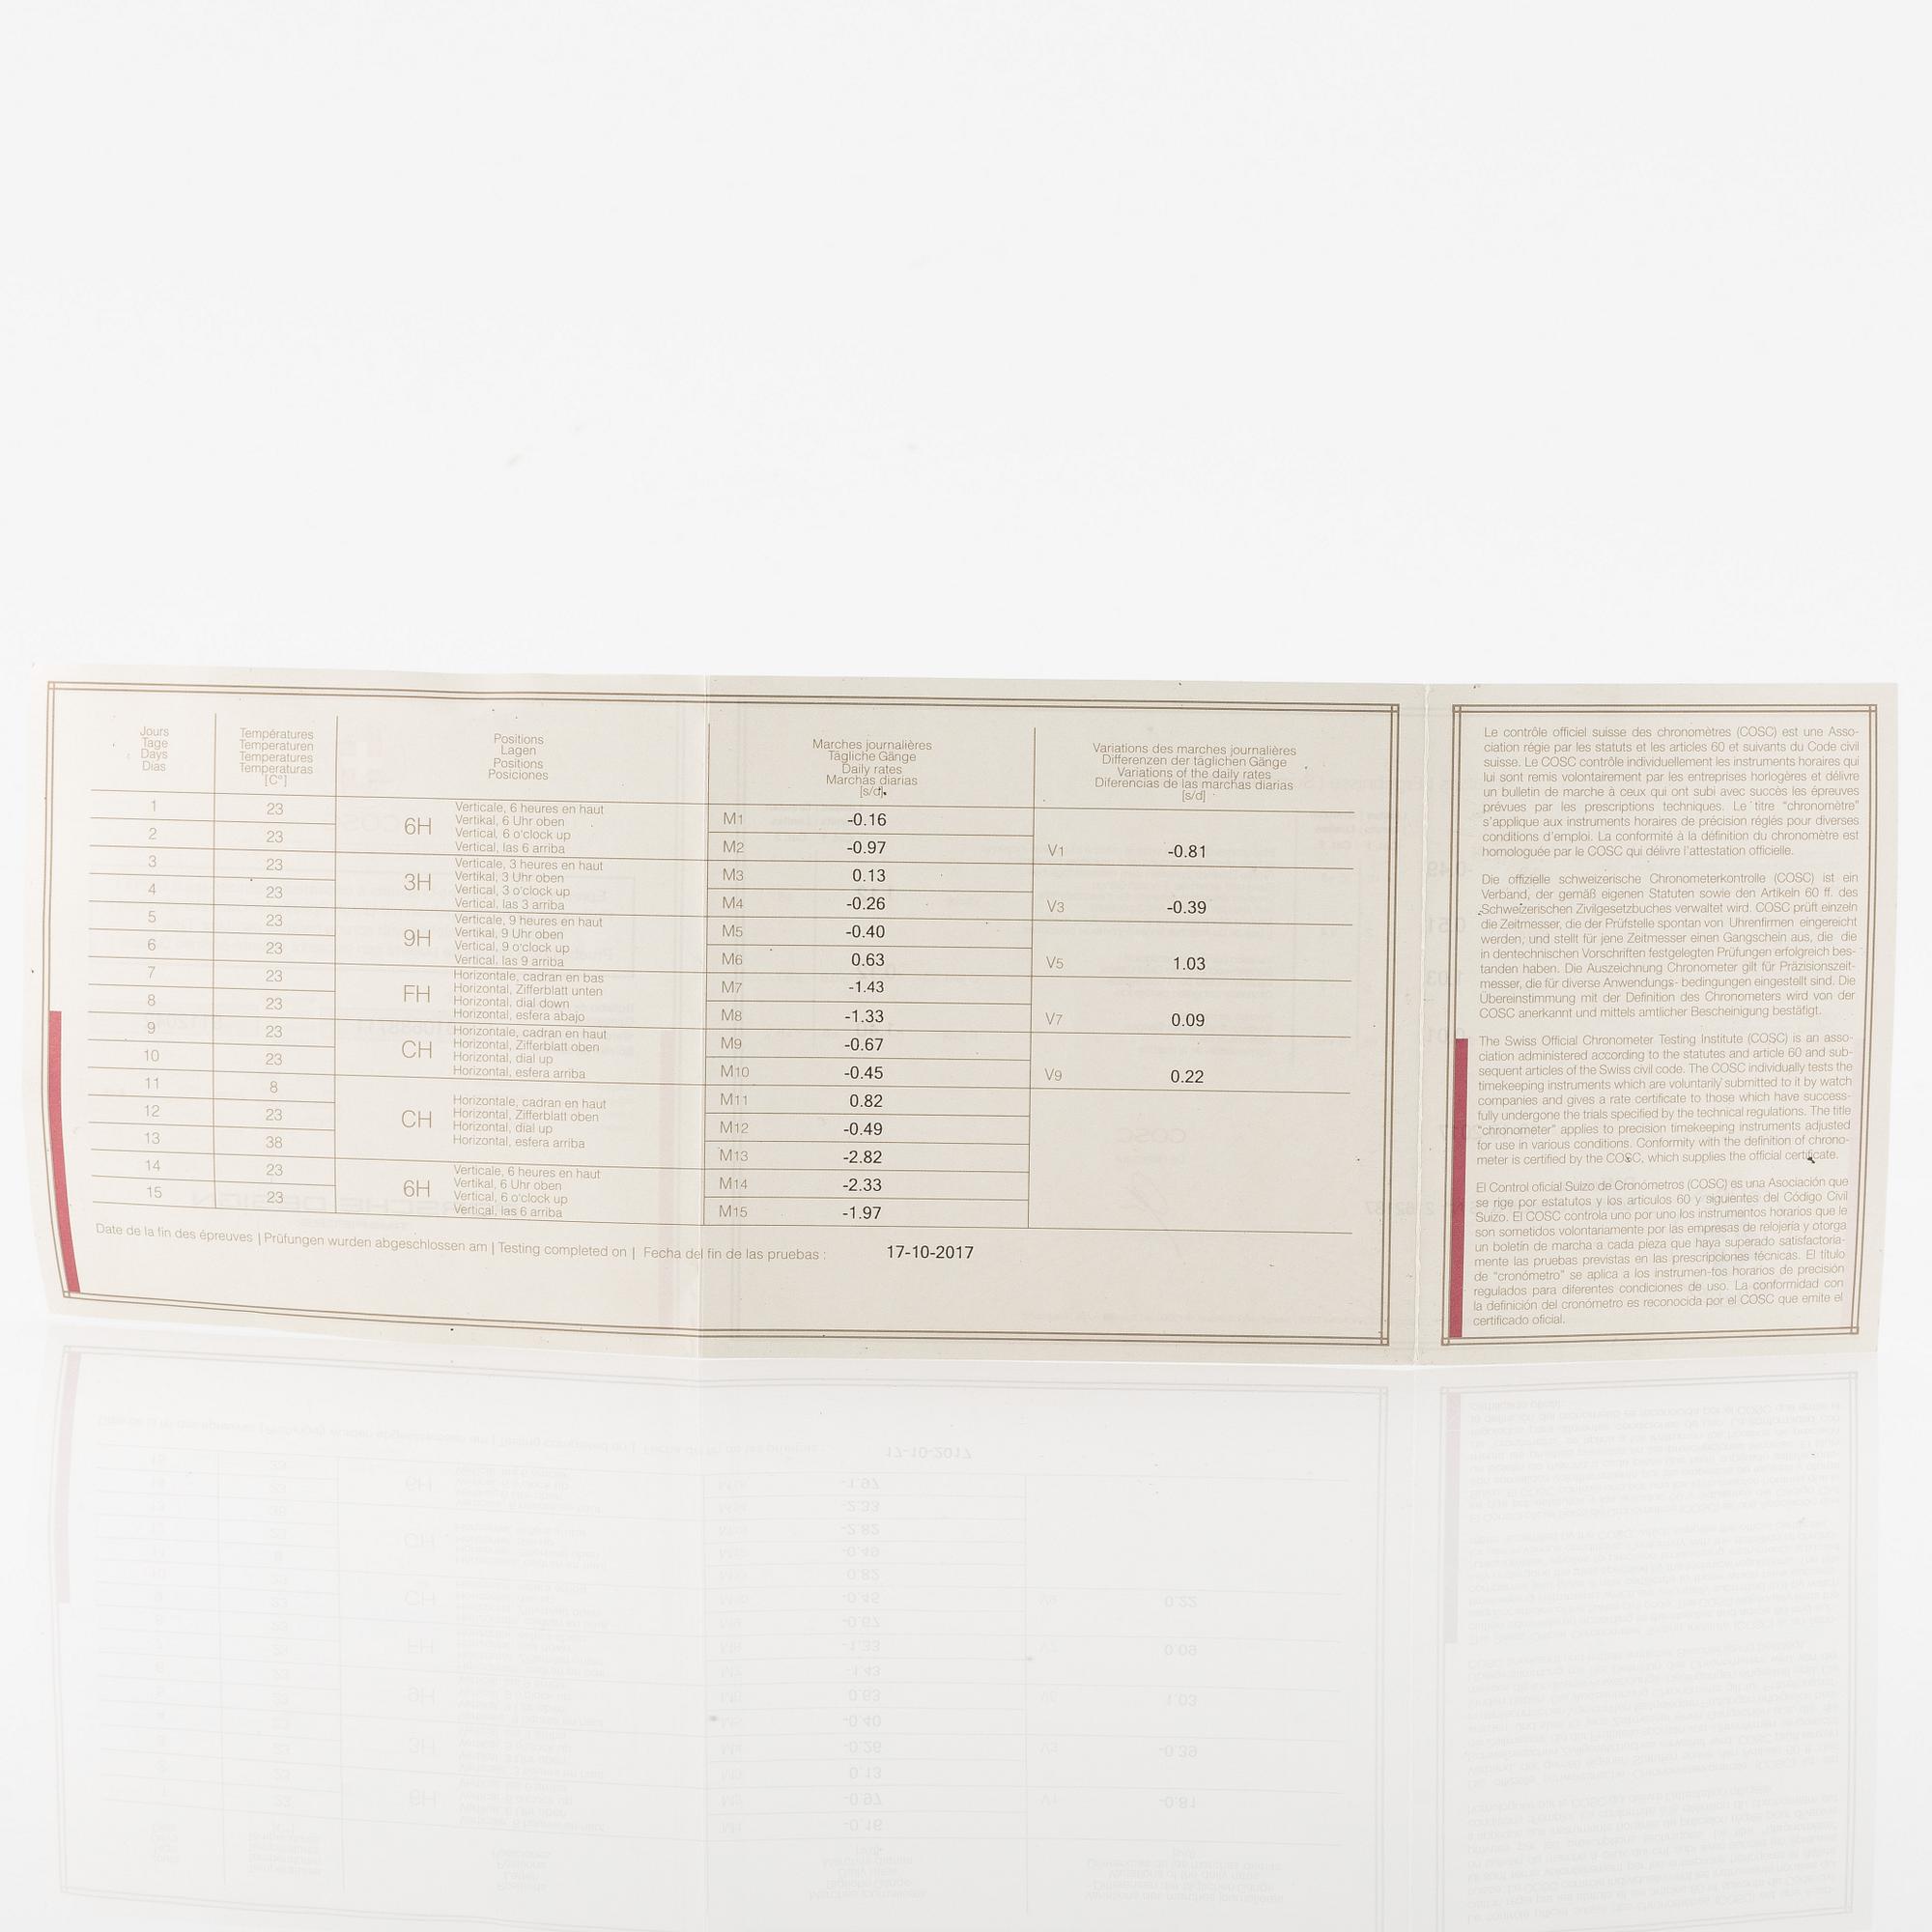 Jours
Tage
Days
Días
Températures
Temperaturen
Temperatures
Temperaturas
[C°]
Positions
Lagen
Positions
Posiciones
Marches journalières
Tägliche Gänge
Daily rates
Marchas diarias
[s/d]
Variations des marches journalières
Differenzen der täglichen Gänge
Variations of the daily rates
Diferencias de las marchas diarias
[s/d]
1 23 M1 -0.16
2 23 M2 -0.97 V1 -0.81
6H
Verticale, 6 heures en haut
Vertikal, 6 Uhr oben
Vertical, 6 o'clock up
Vertical, las 6 arriba
3 23 M3 0.13
4 23 M4 -0.26 V3 -0.39
3H
Verticale, 3 heures en haut
Vertikal, 3 Uhr oben
Vertical, 3 o'clock up
Vertical, las 3 arriba
5 23 M5 -0.40
6 23 M6 0.63 V5 1.03
9H
Verticale, 9 heures en haut
Vertikal, 9 Uhr oben
Vertical, 9 o'clock up
Vertical, las 9 arriba
7 23 M7 -1.43
8 23 M8 -1.33 V7 0.09
FH
Horizontale, cadran en bas
Horizontal, Zifferblatt unten
Horizontal, dial down
Horizontal, esfera abajo
9 23 M9 -0.67
10 23 M10 -0.45 V9 0.22
CH
Horizontale, cadran en haut
Horizontal, Zifferblatt oben
Horizontal, dial up
Horizontal, esfera arriba
11 8 M11 0.82
12 23 M12 -0.49
13 38 M13 -2.82
CH
Horizontale, cadran en haut
Horizontal, Zifferblatt oben
Horizontal, dial up
Horizontal, esfera arriba
14 23 M14 -2.33
15 23 M15 -1.97
6H
Verticale, 6 heures en haut
Vertikal, 6 Uhr oben
Vertical, 6 o'clock up
Vertical, las 6 arriba
Date de la fin des épreuves | Prüfungen wurden abgeschlossen am | Testing completed on | Fecha del fin de las pruebas : 17-10-2017
Le contrôle officiel suisse des chronomètres (COSC) est une Asso-
ciation régie par les statuts et les articles 60 et suivants du Code civil
suisse. Le COSC contrôle individuellement les instruments horaires qui
lui sont remis volontairement par les entreprises horlogères et délivre
un bulletin de marche à ceux qui ont subi avec succès les épreuves
prévues par les prescriptions techniques. Le titre “chronomètre”
s’applique aux instruments horaires de précision réglés pour diverses
conditions d’emploi. La conformité à la définition du chronomètre est
homologuée par le COSC qui délivre l’attestation officielle.
Die offizielle schweizerische Chronometerkontrolle (COSC) ist ein
Verband, der gemäß eigenen Statuten sowie den Artikeln 60 ff. des
Schweizerischen Zivilgesetzbuches verwaltet wird. COSC prüft einzeln
die Zeitmesser, die der Prüfstelle spontan von Uhrenfirmen eingereicht
werden, und stellt für jene Zeitmesser einen Gangschein aus, die die
in dentechnischen Vorschriften festgelegten Prüfungen erfolgreich bes-
tanden haben. Die Auszeichnung Chronometer gilt für Präzisionszeit-
messer, die für diverse Anwendungs- bedingungen eingestellt sind. Die
Übereinstimmung mit der Definition des Chronometers wird von der
COSC anerkannt und mittels amtlicher Bescheinigung bestätigt.
The Swiss Official Chronometer Testing Institute (COSC) is an asso-
ciation administered according to the statutes and article 60 and sub-
sequent articles of the Swiss civil code. The COSC individually tests the
timekeeping instruments which are voluntarily submitted to it by watch
companies and gives a rate certificate to those which have success-
fully undergone the trials specified by the technical regulations. The title
“chronometer” applies to precision timekeeping instruments adjusted
for use in various conditions. Conformity with the definition of chrono-
meter is certified by the COSC, which supplies the official certificate.
El Control oficial Suizo de Cronómetros (COSC) es una Asociación que
se rige por estatutos y los artículos 60 y siguientes del Código Civil
Suizo. El COSC controla uno por uno los instrumentos horarios que le
son sometidos volontariamente por las empresas de relojería y otorga
un boletín de marcha a cada pieza que haya superado satisfactoria-
mente las pruebas previstas en las prescripciones técnicas. El título
de “cronómetro” se aplica a los instrumen-tos horarios de precisión
regulados para diferentes condiciones de uso. La conformidad con
la definición del cronómetro es reconocida por el COSC que emite el
certificado oficial.